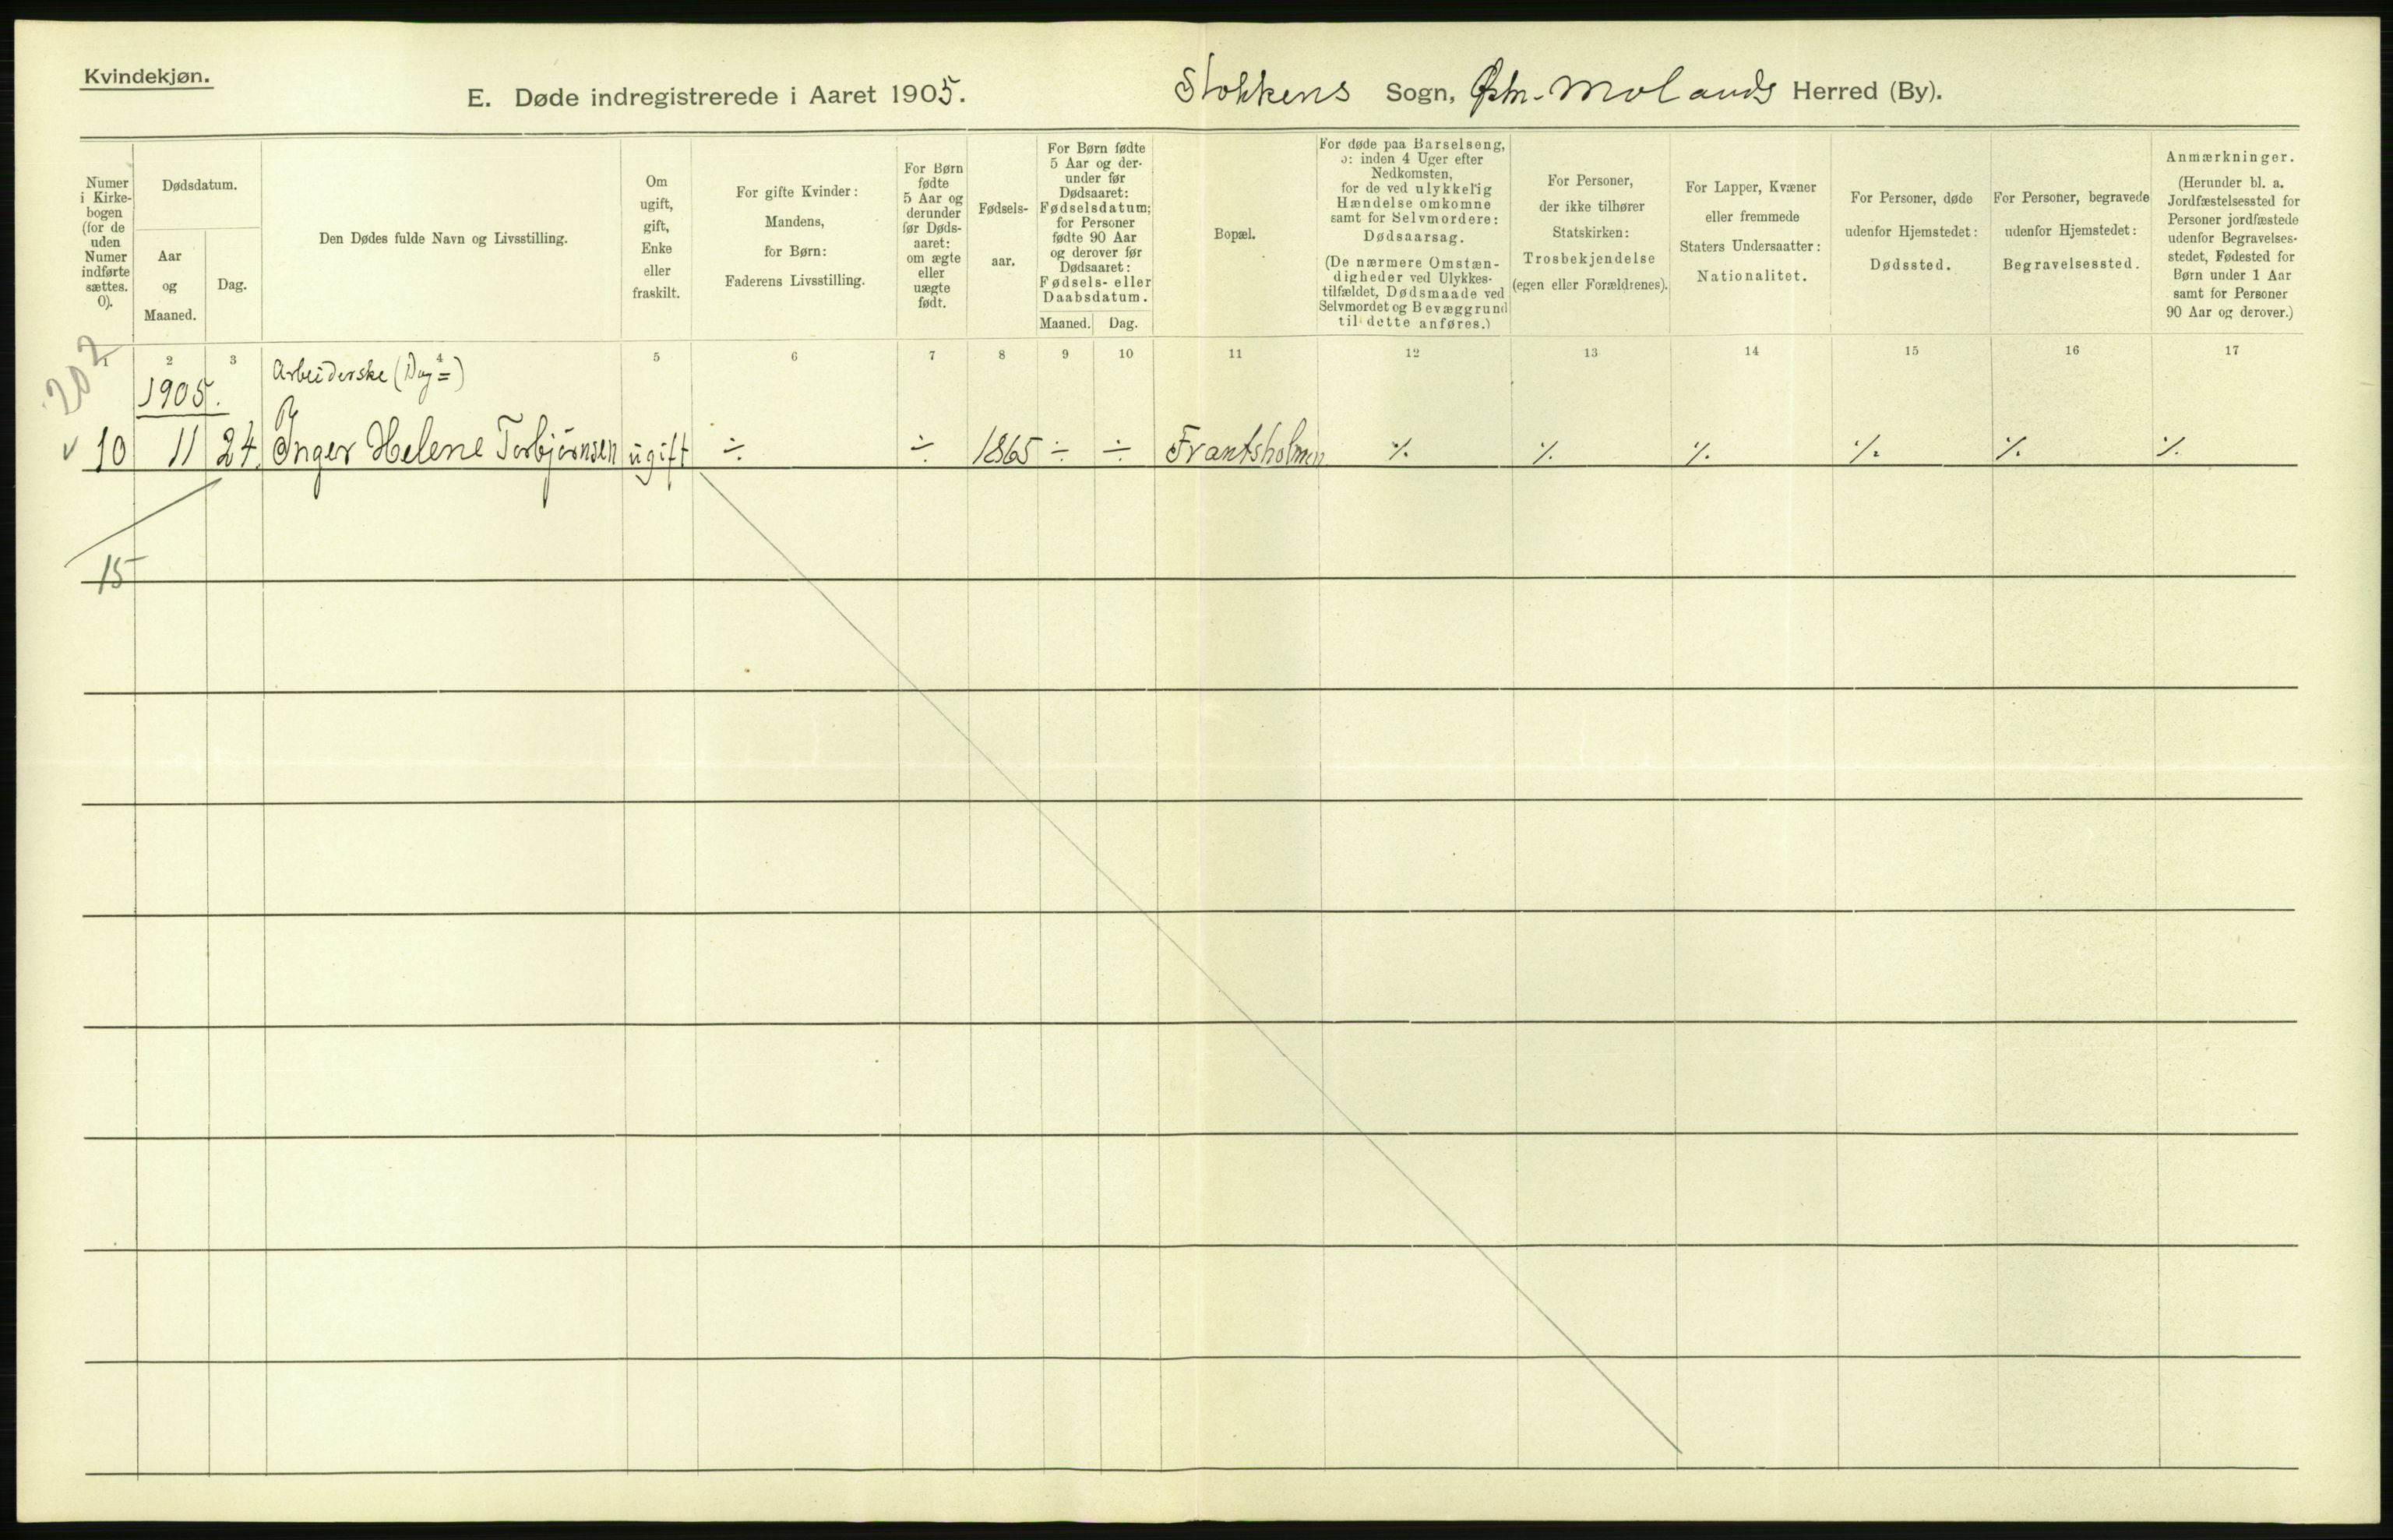 Kvindekjøn.
E. Døde indregistrerede i Aaret 1905.
Stokkens Sogn, Østr-Molands Herred (By).
Numer
i Kirke-
bogen
(for de
uden
Numer
indførte
sættes.
0).
Dødsdatum.
Aar
og
Maaned.
Dag.
Den Dødes fulde Navn og Livsstilling.
Om
ugift,
gift,
Enke
eller
fraskilt.
For gifte Kvinder:
Mandens,
for Børn:
Faderens Livsstilling.
For Børn
fødte
5 Aar og
derunder
før Døds-
aaret:
om ægte
eller
uægte
født.
Fødsels-
aar.
For Børn fødte
5 Aar og der-
under før
Dødsaaret:
Fødselsdatum;
for Personer
fødte 90 Aar
og derover før
Dødsaaret:
Fødsels- eller
Daabsdatum.
Maaned. Dag.
Bopæl.
For døde paa Barselseng,
ɔ: inden 4 Uger efter
Nedkomsten,
for de ved ulykkelig
Hændelse omkomne
samt for Selvmordere:
Dødsaarsag.
(De nærmere Omstæn-
digheder ved Ulykkes-
tilfældet, Dødsmaade ved
Selvmordet og Bevæggrund
til dette anføres.)
For Personer,
der ikke tilhører
Statskirken:
Trosbekjendelse
(egen eller Forældrenes).
For Lapper, Kvæner
eller fremmede
Staters Undersaatter:
Nationalitet.
For Personer, døde
udenfor Hjemstedet:
Dødssted.
For Personer, begravede
udenfor Hjemstedet:
Begravelsessted.
Anmærkninger.
(Herunder bl. a.
Jordfæstelsessted for
Personer jordfæstede
udenfor Begravelses-
stedet, Fødested for
Børn under 1 Aar
samt for Personer
90 Aar og derover.)
1 2 3 4 5 6 7 8 9 10 11 12 13 14 15 16 17
202
1905.
Arbeiderske (Dag=)
v 10 11 24. Inger Helene Torbjörnsen ugift ÷ ÷ 1865 ÷ ÷ Frantsholmen ·/. ·/. ·/. ·/. ·/. ·/.
15